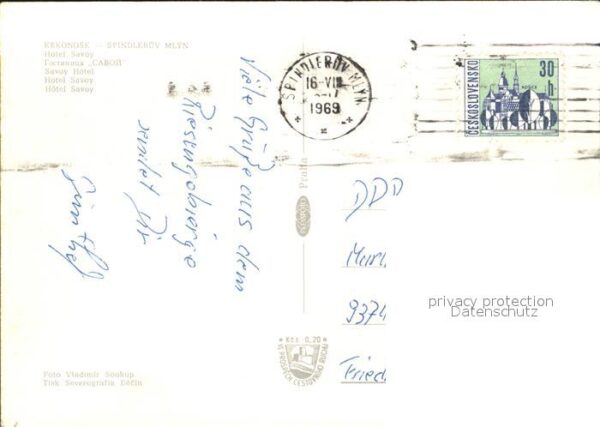 KRKONOŠE — ŠPINDLERŮV MLÝN
Hotel Savoy
Гостиница „САВОЙ"
Savoy Hotel
Hotel Savoy
Hôtel Savoy
Viele Grüße aus dem
Riesengebirge
sendet Dir
ŠPINDLERŮV MLÝN
16-VII
1969
ČESKOSLOVENSKO
30 h
KOŠICE
Praha
DDD
9374
Fried
privacy protection
Datenschutz
Kčs 0,20
Foto Vladimír Soukup
Tisk Severografia Děčín